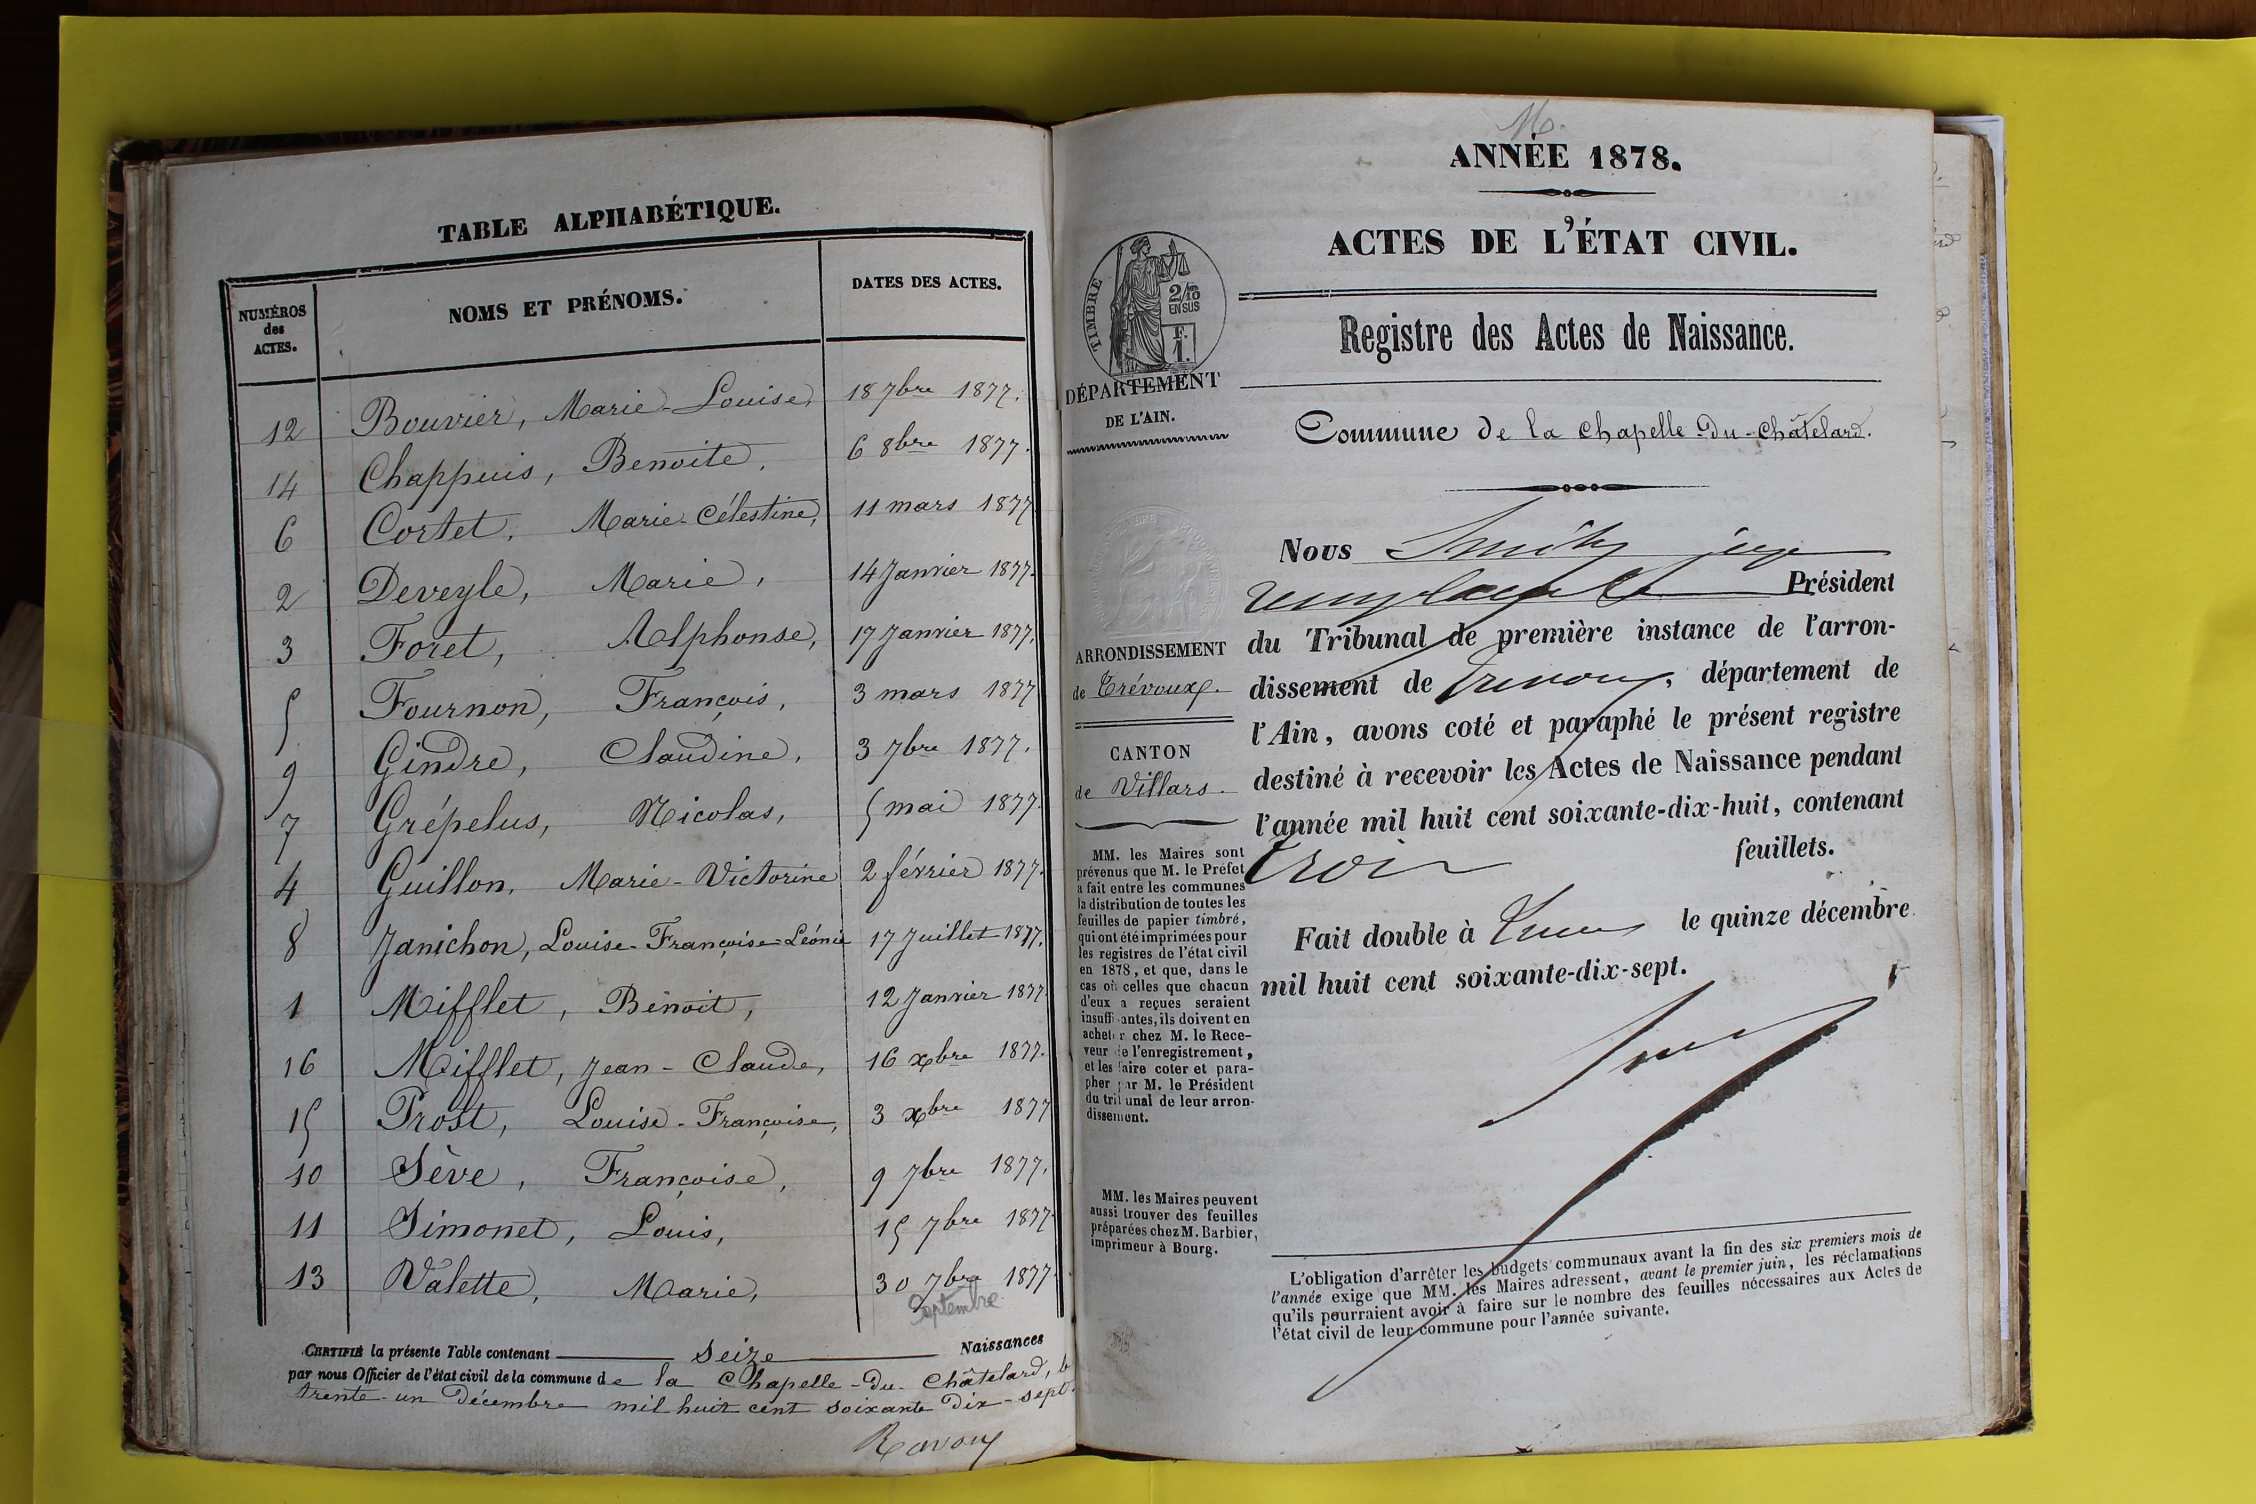 TABLE ALPHABÉTIQUE.
NUMÉROS des ACTES.
NOMS ET PRÉNOMS.
DATES DES ACTES.
12 Bouvier, Marie-Louise, 18 7bre 1877.
14 Chappuis, Benoite, 6 8bre 1877.
6 Cortet, Marie-Célestine, 11 mars 1877
2 Deveyle, Marie, 14 Janvier 1877.
3 Foret, Alphonse, 17 Janvier 1877.
5 Fournon, François, 3 mars 1877
9 Gindre, Claudine, 3 7bre 1877.
7 Grépelus, Nicolas, 5 mai 1877.
4 Guillon, Marie-Victorine 2 février 1877.
8 Janichon, Louise-Françoise-Léonie 17 Juillet 1877.
1 Mifflet, Benoit, 12 Janvier 1877
16 Mifflet, Jean-Claude, 16 xbre 1877.
15 Prost, Louise-Françoise, 3 xbre 1877
10 Sève, Françoise, 9 7bre 1877.
11 Simonet, Louis, 15 7bre 1877
13 Valette, Marie, 30 7bre 1877
Septembre
CERTIFIÉ la présente Table contenant seize Naissances
par nous Officier de l'état civil de la commune de la Chapelle-du-Châtelard, le
trente-un Décembre mil huit cent soixante dix-sept.
M.
ANNÉE 1878.
ACTES DE L'ÉTAT CIVIL.
TIMBRE
2/10
EN SUS
F.
1.
DÉPARTEMENT
DE L'AIN.
Registre des Actes de Naissance.
Commune de la Chapelle-du-Châtelard.
Nous juge
Président
du Tribunal de première instance de l'arron-
dissement de Trevoux, département de
l'Ain, avons coté et paraphé le présent registre
destiné à recevoir les Actes de Naissance pendant
l'année mil huit cent soixante-dix-huit, contenant
trois feuillets.
Fait double à le quinze décembre
mil huit cent soixante-dix-sept.
ARRONDISSEMENT
de Trévoux.
CANTON
de Villars.
MM. les Maires sont
prévenus que M. le Préfet
a fait entre les communes
la distribution de toutes les
feuilles de papier timbré,
qui ont été imprimées pour
les registres de l'état civil
en 1878, et que, dans le
cas où celles que chacun
d'eux a reçues seraient
insuffisantes, ils doivent en
acheter chez M. le Rece-
veur de l'enregistrement,
et les faire coter et para-
pher par M. le Président
du tribunal de leur arron-
dissement.
MM. les Maires peuvent
aussi trouver des feuilles
préparées chez M. Barbier,
imprimeur à Bourg.
L'obligation d'arrêter les budgets communaux avant la fin des six premiers mois de
l'année exige que MM. les Maires adressent, avant le premier juin, les réclamations
qu'ils pourraient avoir à faire sur le nombre des feuilles nécessaires aux Actes de
l'état civil de leur commune pour l'année suivante.